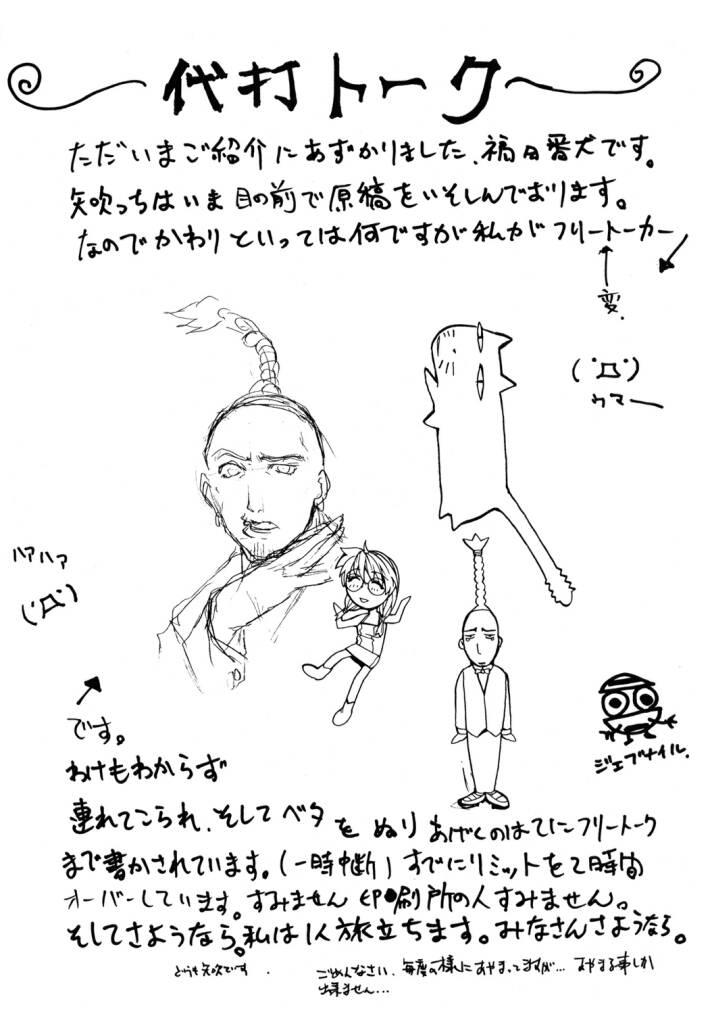 代打トーク
ただいまご紹介にあずかりました、福日番犬です。
矢吹っちはいま目の前で原稿をいそしんでおります。
なのでかわりといっては何ですが私がフリートーカー
変。
(゚Д゚)
ウマー
ハアハア
(゚Д゚)
です。
ジェブナイル.
わけもわからず
連れてこられ、そしてベタをぬりあげくのはてにフリートーク
まで書かされています。(一時中断)すでにリミットを2時間
オーバーしています。すみません印刷所の人すみません。
そしてさようなら。私は1人旅立ちます。みなさんさようなら。
どうも矢吹です.
ごめんなさい.毎度の様にあやまってますが…あやまる事しか
出来ません…